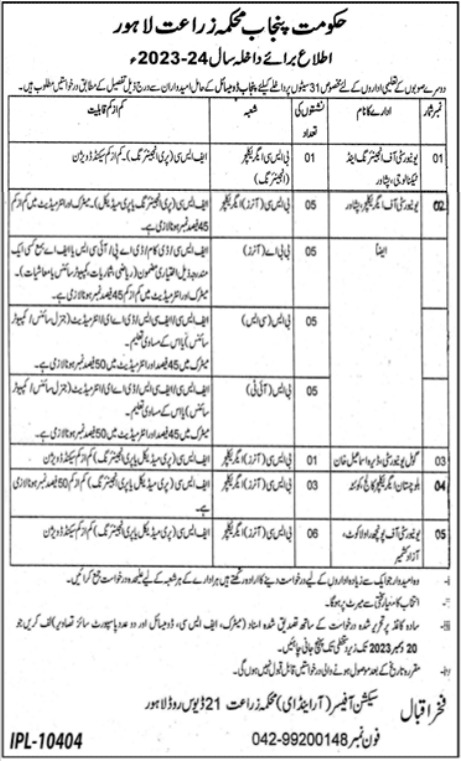 حکومت پنجاب محکمہ زراعت لاہور
اطلاع برائے داخلہ سال 24-2023ء
دوسرے صوبوں کے تعلیمی اداروں کے لئے مختص 31 سیٹوں پر داخلے کیلئے پنجاب ڈومیسائل کے حامل امیدواران سے درج ذیل تفصیل کے مطابق درخواستیں مطلوب ہیں۔
نمبر شمار ادارے کا نام نشستوں کی تعداد شعبہ کم از کم قابلیت
01 یونیورسٹی آف انجینئرنگ اینڈ ٹیکنالوجی، پشاور 01 بی ایس سی ایگریکلچر (انجینئرنگ) ایف ایس سی (پری انجینئرنگ)۔ کم از کم سیکنڈ ڈویژن
02 یونیورسٹی آف ایگریکلچر، پشاور 05 بی ایس سی (آنرز) ایگریکلچر ایف ایس سی (پری انجینئرنگ یا پری میڈیکل)۔ میٹرک اور انٹرمیڈیٹ میں کم از کم 45 فیصد نمبر ہونا لازمی ہے۔
ایضاً 05 بی بی اے (آنرز) ایف ایس سی/ڈی کام/ڈی اے پی/آئی سی ایس یا ایف اے بمع کسی ایک مندرجہ ذیل اختیاری مضمون (ریاضی، شماریات، کمپیوٹر سائنس یا معاشیات)۔
میٹرک اور انٹرمیڈیٹ میں کم از کم 45 فیصد نمبر ہونا لازمی ہے۔
05 بی ایس (سی ایس) ایف ایس سی/ایف سی ایس/ڈی اے ای/انٹرمیڈیٹ (جنرل سائنس/کمپیوٹر سائنس) یا اس کے مساوی تعلیم۔
میٹرک میں 45 فیصد اور انٹرمیڈیٹ میں 50 فیصد نمبر ہونا لازمی ہے۔
05 بی ایس (آئی ٹی) ایف ایس سی/ایف سی ایس/ڈی اے ای/انٹرمیڈیٹ (جنرل سائنس/کمپیوٹر سائنس) یا اس کے مساوی تعلیم۔
میٹرک میں 45 فیصد اور انٹرمیڈیٹ میں 50 فیصد نمبر ہونا لازمی ہے۔
03 گومل یونیورسٹی، ڈیرہ اسماعیل خان 01 بی ایس سی (آنرز) ایگریکلچر ایف ایس سی (پری میڈیکل یا پری انجینئرنگ) کم از کم سیکنڈ ڈویژن
04 بلوچستان ایگریکلچر کالج، کوئٹہ 03 بی ایس سی (آنرز) ایگریکلچر ایف ایس سی (پری میڈیکل یا پری انجینئرنگ) کم از کم 50 فیصد نمبر ہونا لازمی ہے۔
05 یونیورسٹی آف پونچھ راولاکوٹ، آزاد کشمیر 06 بی ایس سی (آنرز) ایگریکلچر ایف ایس سی (پری میڈیکل یا پری انجینئرنگ) کم از کم سیکنڈ ڈویژن
i- وہ امیدوار جو ایک سے زیادہ اداروں کے لیے درخواست دینے کا ارادہ رکھتے ہیں ہر ادارے کے ہر شعبہ کے لیے علیحدہ درخواست جمع کرائیں۔
ii- انتخاب کا معیار سختی سے میرٹ پر ہوگا۔
iii- سادہ کاغذ پر تحریر شدہ درخواست کے ساتھ تصدیق شدہ اسناد (میٹرک، ایف ایس سی، ڈومیسائل اور دو عدد پاسپورٹ سائز تصاویر) لف کریں جو
20 دسمبر 2023 تک زیر دستخطی تک پہنچ جانی چائیں۔
iv- مقررہ تاریخ کے بعد موصول ہونے والی درخواستیں قابل قبول نہیں ہوں گی۔
فخر اقبال
سیکشن آفیسر (آر اینڈ ای) محکمہ زراعت 21 ڈیوس روڈ لاہور
فون نمبر 99200148-042
IPL-10404